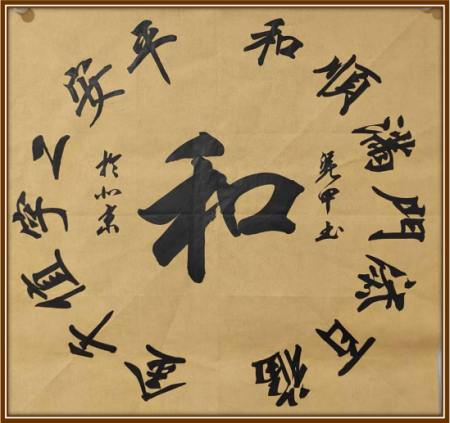 和順滿門添百福
平安二字值千金
和
於北京